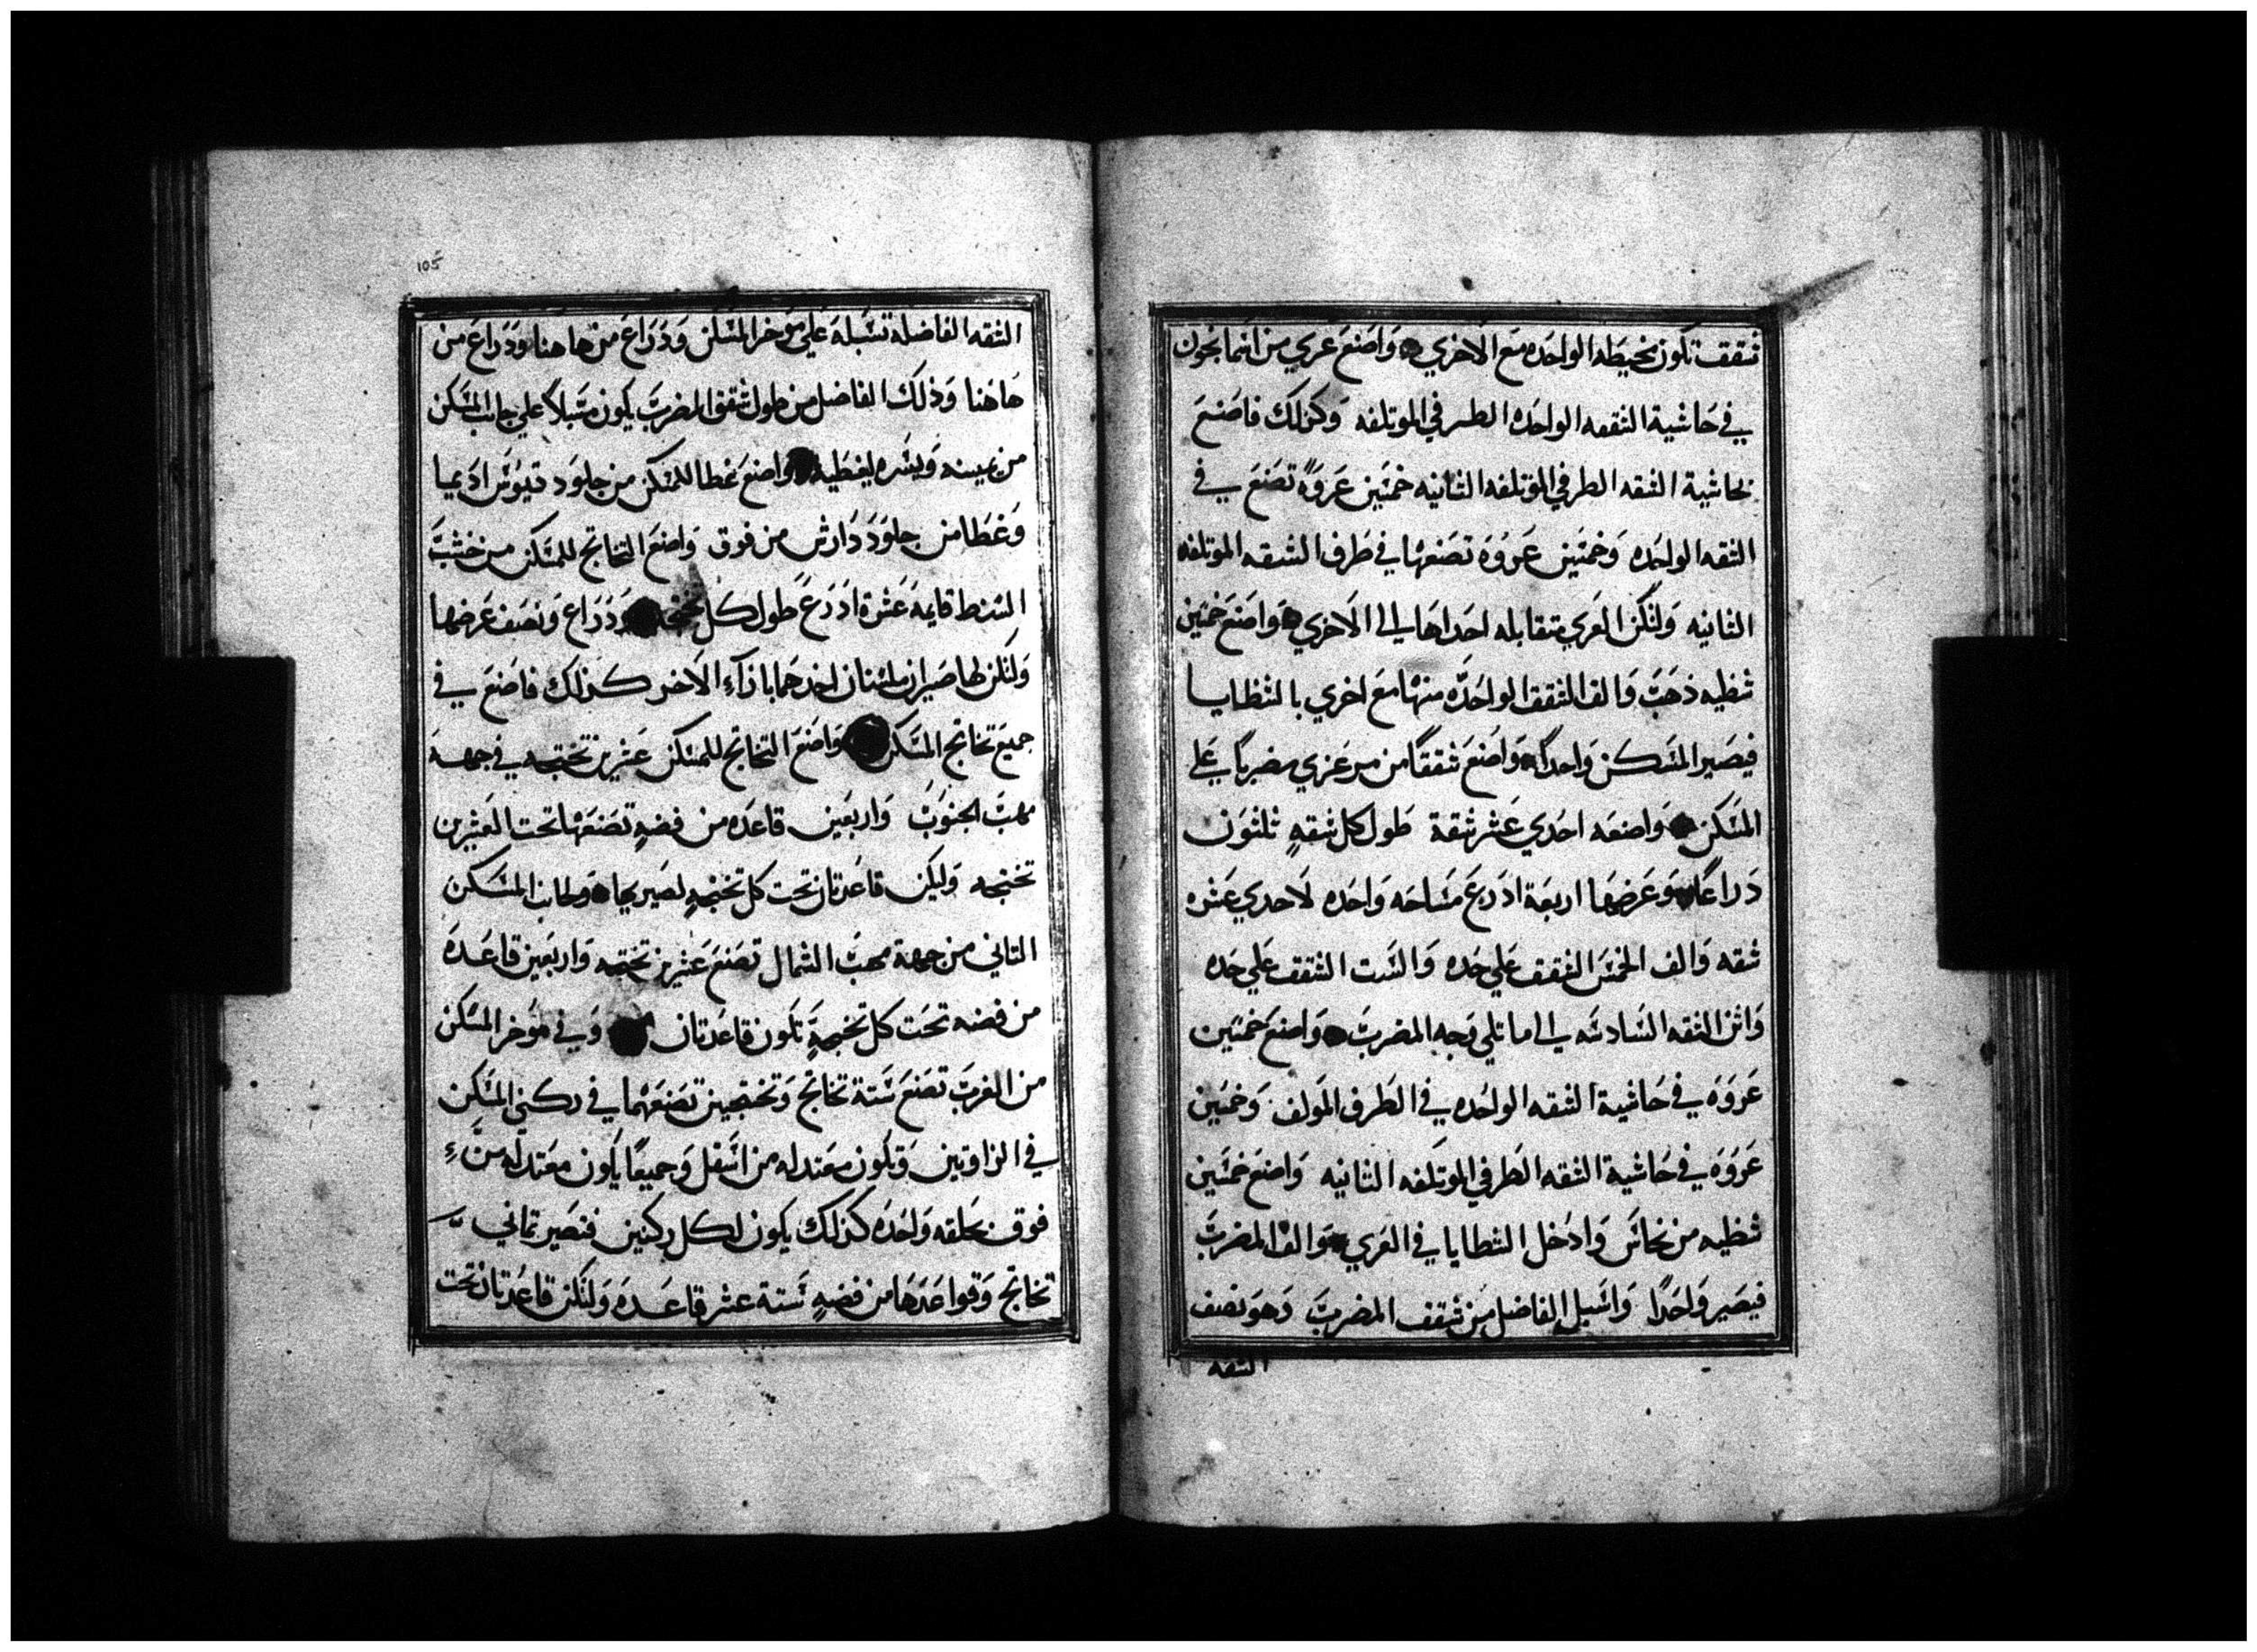 شقق تكون مخيطه الواحده مع الاخري واضنع عري من اسمانجون
في حاشية الشقه الواحده الطرفي الموتلفه وكذلك فاصنع
بحاشية الشقه الطرفي الموتلفه الثانيه خمسين عروةً تصنع في
الشقه الواحده وخمسين عروة تصنعها في طرف الشقه الموتلفه
الثانيه ولتكن العري متقابله احداها الي الاخري واصنع خمسين
شظيه ذهب والف الشقق الواحده منها مع اخري بالشظايا
فيصير المسكن واحداً واصنع شققاً من مرعزي مضرباً علي
المسكن واصنعه احدي عشر شقة طول كل شقةٍ ثلثون
دراعًا وعرضها اربعة ادرع مساحه واحده لاحدي عشره
شقه والف الخمس الشقق علي حده والست الشقق علي حده
واثن الشقه السادسه الي ما تلي وجه المضرب واصنع خمسين
عروه في حاشية الشقه الواحده في الطرف المولف وخمسين
عروه في حاشية الشقه الطرفي الموتلفه الثانيه واصنع خمسين
شظيه من نحاس وادخل الشظايا في العري والف المضرب
فيصير واحدًا واسبل الفاضل من شقق المضرب وهو نصف
الشقه
105
الشقه الفاضله تسبله علي موخر المسكن ودراع من هاهنا ودراع من
هاهنا وذلك الفاضل من طول شقق المضرب يكون مسبلاً علي جانب المسكن
من يمينه ويسره ليغطيه واصنع غطا للمسكن من جلود تيوس اديما
وغطا من جلود دارش من فوق واصنع التخاتج للمسكن من خشب
السنط قايمه عشرة ادرع طول كل تختجه ودراع ونصف عرضها
ولتكن لها صيران اثنان احدهما بازآء الاخر كذلك فاصنع في
جميع تخاتج المسكن واصنع التخاتج للمسكن عشرين تختجه في جهة
مهب الجنوب واربعين قاعده من فضةٍ تصنعها تحت العشرين
تختجه وليكن قاعدتان تحت كل تختجةٍ لصيريها ولجانب المسكن
الثاني من جهة مهب الشمال تصنع عشرين تختجه واربعين قاعده
من فضه تحت كل تختجةٍ تكون قاعدتان وفي موخر المسكن
من الغرب تصنع ستة تخاتج وتختجيين تصنعهما في ركني المسكن
في الزاوتين وتكون معتدله من اسفل وجميعًا يكون معتدله من
فوق بحلقه واحده كذلك يكون لكل ركنين فتصير ثماني
تخاتج وقواعدها من فضةٍ ستة عشر قاعده ولتكن قاعدتان تحت